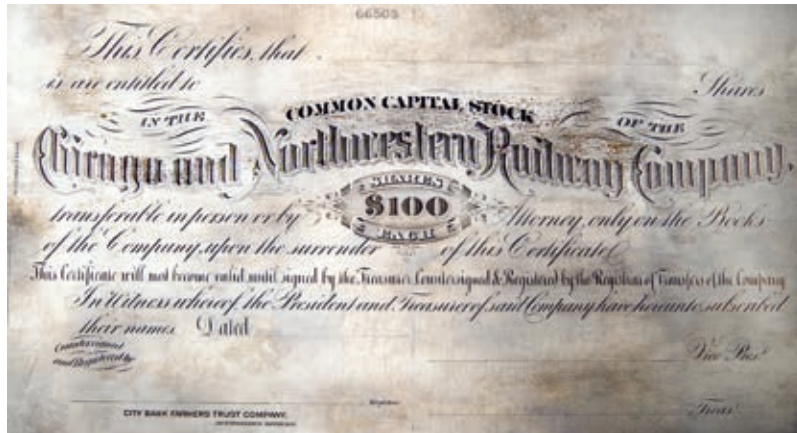 66503
This Certifies, that
is are entitled to Shares
IN THE COMMON CAPITAL STOCK OF THE
Chicago and Northwestern Railway Company,
SHARES
$100
EACH
transferable in person or by Attorney, only on the Books
of the Company, upon the surrender of this Certificate
This Certificate will not become valid until signed by the Treasurer Countersigned & Registered by the Registrar of Transfers of the Company
In Witness whereof the President and Treasurer of said Company have hereunto subscribed
their names Dated
Countersigned
and Registered by
Vice Pres.t
CITY BANK FARMERS TRUST COMPANY,
Treas.r